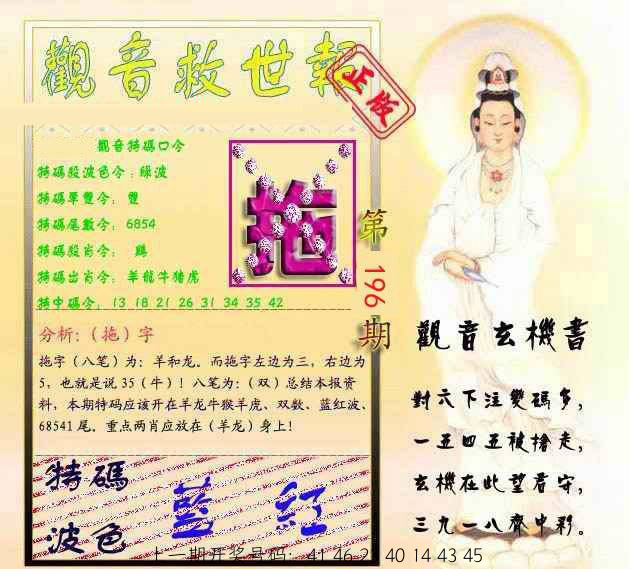 觀音救世報
正版
觀音特碼口令
特碼殺波色令：綠波
特碼單雙令： 雙
特碼尾數令： 6854
特碼殺肖令： 鷄
特碼出肖令： 羊龍牛猪虎
特中碼令： 13 18 21 26 31 34 35 42
拖
第196期
分析：（拖）字
拖字（八笔）为：羊和龙。而拖字左边为三，右边为
5，也就是说 35（牛）！八笔为：（双）总结本报资
料，本期特码应该开在羊龙牛猴羊虎、双数、蓝红波、
68541 尾。重点两肖应放在（羊龙）身上！
特碼
波色
藍 紅
觀音玄機書
對六下注雙碼多，
一五四五被搶走，
玄機在此望看守，
三九一八齊中彩。
上一期开奖号码： 41 46 23 40 14 43 45